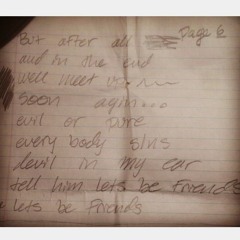 But after all Page 6
and in the end
we'll meet
soon agin...
evil or pure
every body sins
devil in my ear
tell him lets be Friends
lets be Friends